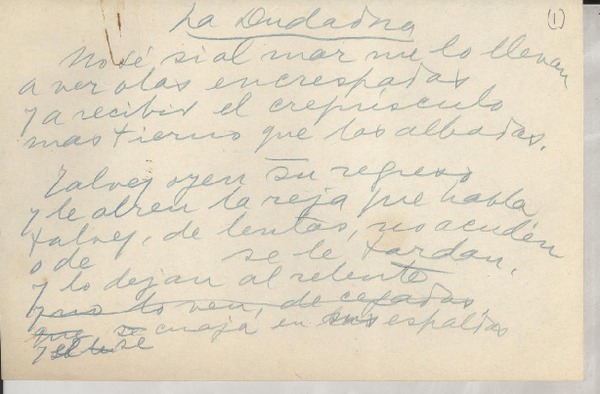 La Dudadora
(1)
No sé si al mar me lo llevan
a ver olas encrespadas
y a recibir el crepúsculo
mas tierno que las albadas.
Talvez oyen su regreso
y le abren la reja que habla
y talvez, de lentas, no acuden
o de se le tardan,
y lo dejan al relente
y no lo ven, de cegadas
que se cuaja en sus espaldas
y se